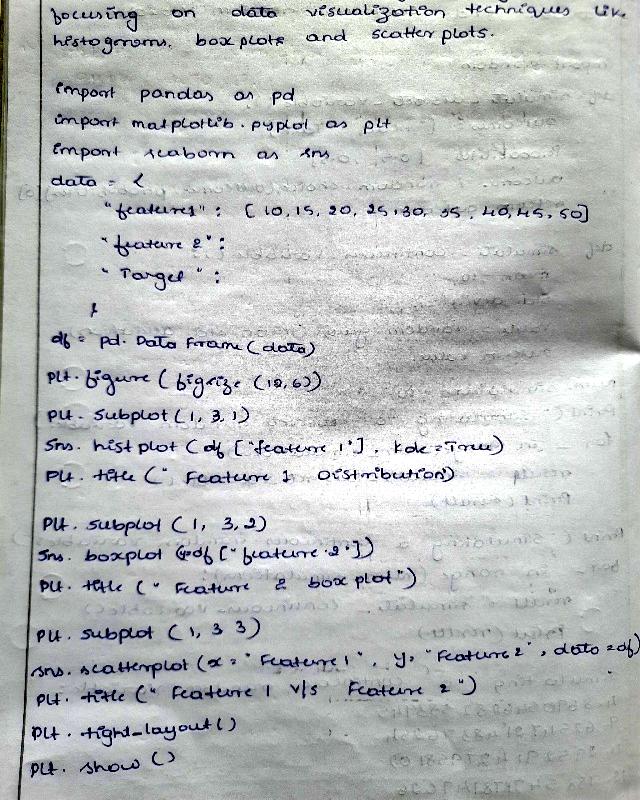 focusing on data visualization techniques like
histograms, box plots and scatter plots.
import pandas as pd
import matplotlib.pyplot as plt
import seaborn as sns
data = {
"feature1" : [10, 15, 20, 25, 30, 35, 40, 45, 50]
"feature 2" :
"Target" :
}
df = pd. Data Frame (data)
plt. figure (figsize (12,6))
plt. subplot (1, 3, 1)
sns. hist plot (df ["feature 1"], kde = True)
plt. title (" Feature 1 Distribution)
plt. subplot (1, 3, 2)
sns. boxplot (df ["feature 2"])
plt. title (" Feature 2 box plot")
plt. subplot (1, 3 3)
sns. scatterplot (x = "Feature 1", y, "Feature 2", data = df)
plt. title (" Feature 1 v/s Feature 2 ")
plt. tight_layout ()
plt. show ()